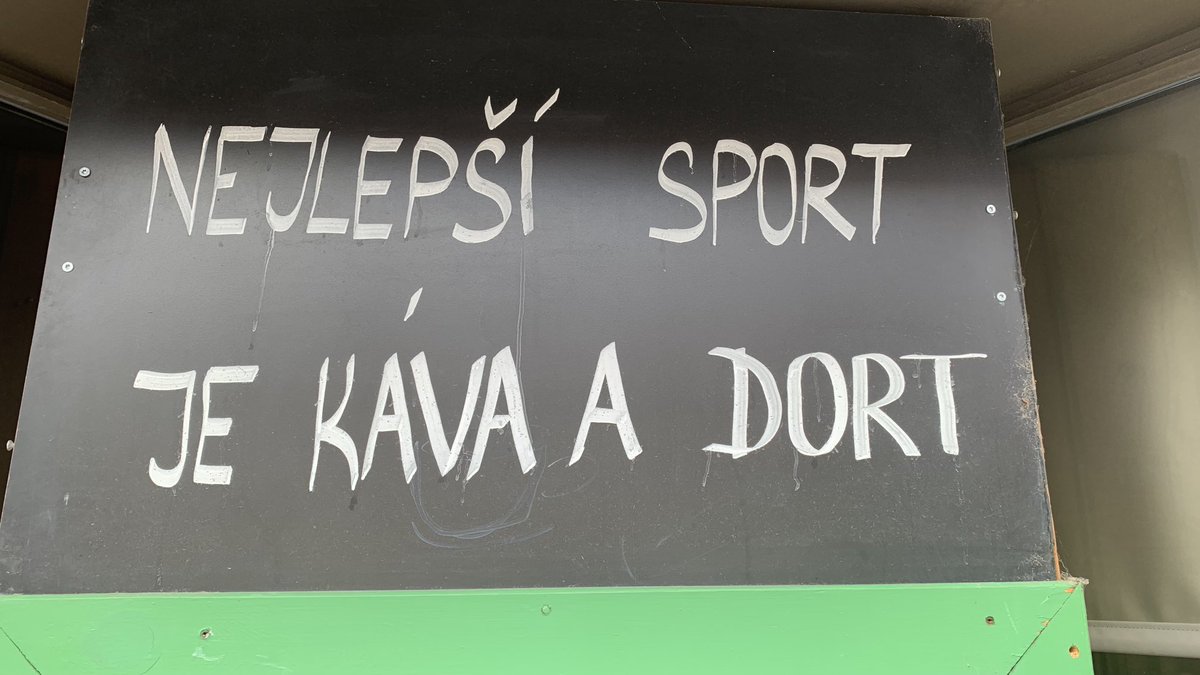 NEJLEPŠÍ SPORT
JE KÁVA A DORT